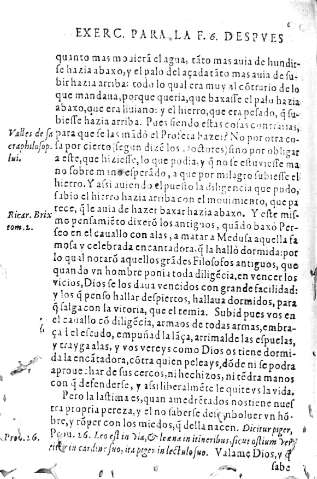 EXERC. PARA LA F. 6. DESPVES
quanto mas mouiera el agua, tãto mas auia de hundir-
se hazia abaxo, y el palo del açada tãto mas auia de su-
bir hazia arriba: todo lo qual era muy al cõtrario de lo
que mandaua, porque queria, que baxasse el palo hazia
abaxo, que era liuiano: y el hierro, que era pesado, q̃ su-
biesse hazia arriba. Pues siendo estas cosas contrarias,
para que se las mãdó el Profeta hazer? No por otra co-
sa por cierto (segun dizẽ los doctores) sino por obligar
a este, que hiziesse, lo que podia: y q̃ no se estuuiesse ma
no sobre mano esperado, a que por milagro subiesse el
hierro. Y assi auiendo el puesto la diligencia que pudo,
sabio el hierro hazia arriba con el mouimiento, que pa
rece, q̃ le auia de hazer baxar hazia abaxo. Y este mis-
mo pensamiẽto dixerõ los antiguos, quãdo baxò Per-
seo en el cauallo con alas, a matar a Medusa aquella fa
mosa y celebrada encantadora. q̃ la halló dormida: por
lo qual notarõ aquellos grãdes Filosofos antiguos, que
quando vn hombre ponia toda diligẽcia, en vencer los
vicios, Dios se los daua vencidos con grande facilidad:
y los q̃ penso hallar despiertos, hallaua dormidos, para
q̃ salga con la vitoria, que el temia. Subid pues vos en
el cauallo cõ diligẽcia, armaos de todas armas, embra-
ça i el escudo, empuñad la lãça, arrimalde las espuelas,
y crayga alas, y vos vereys como Dios os tiene dormi-
da la encãtadora, cõtra quien peleays, dõde ni se podra
aprouechar de sus cercos, ni hechizos, ni tẽdra manos
con q̃ defenderse, y assi liberalmẽte le quiteys la vida.
Pero la lastima es, quan amedrẽtados nos tiene nues
tra propria pereza, y el no saberse desemboluer vn hõ-
bre, y rõper con los miedos, q̃ della nacen. Dicitur piger,
Prou. 26. Leo est in via, & leæna in itineribus: sicut ostium
in cardine suo, ita piger in lectulo suo. Valame Dios, y q̃
sabe
Valles de sa
cra philosop.
Ricar. Brix
tom. 2.
Prob. 26.